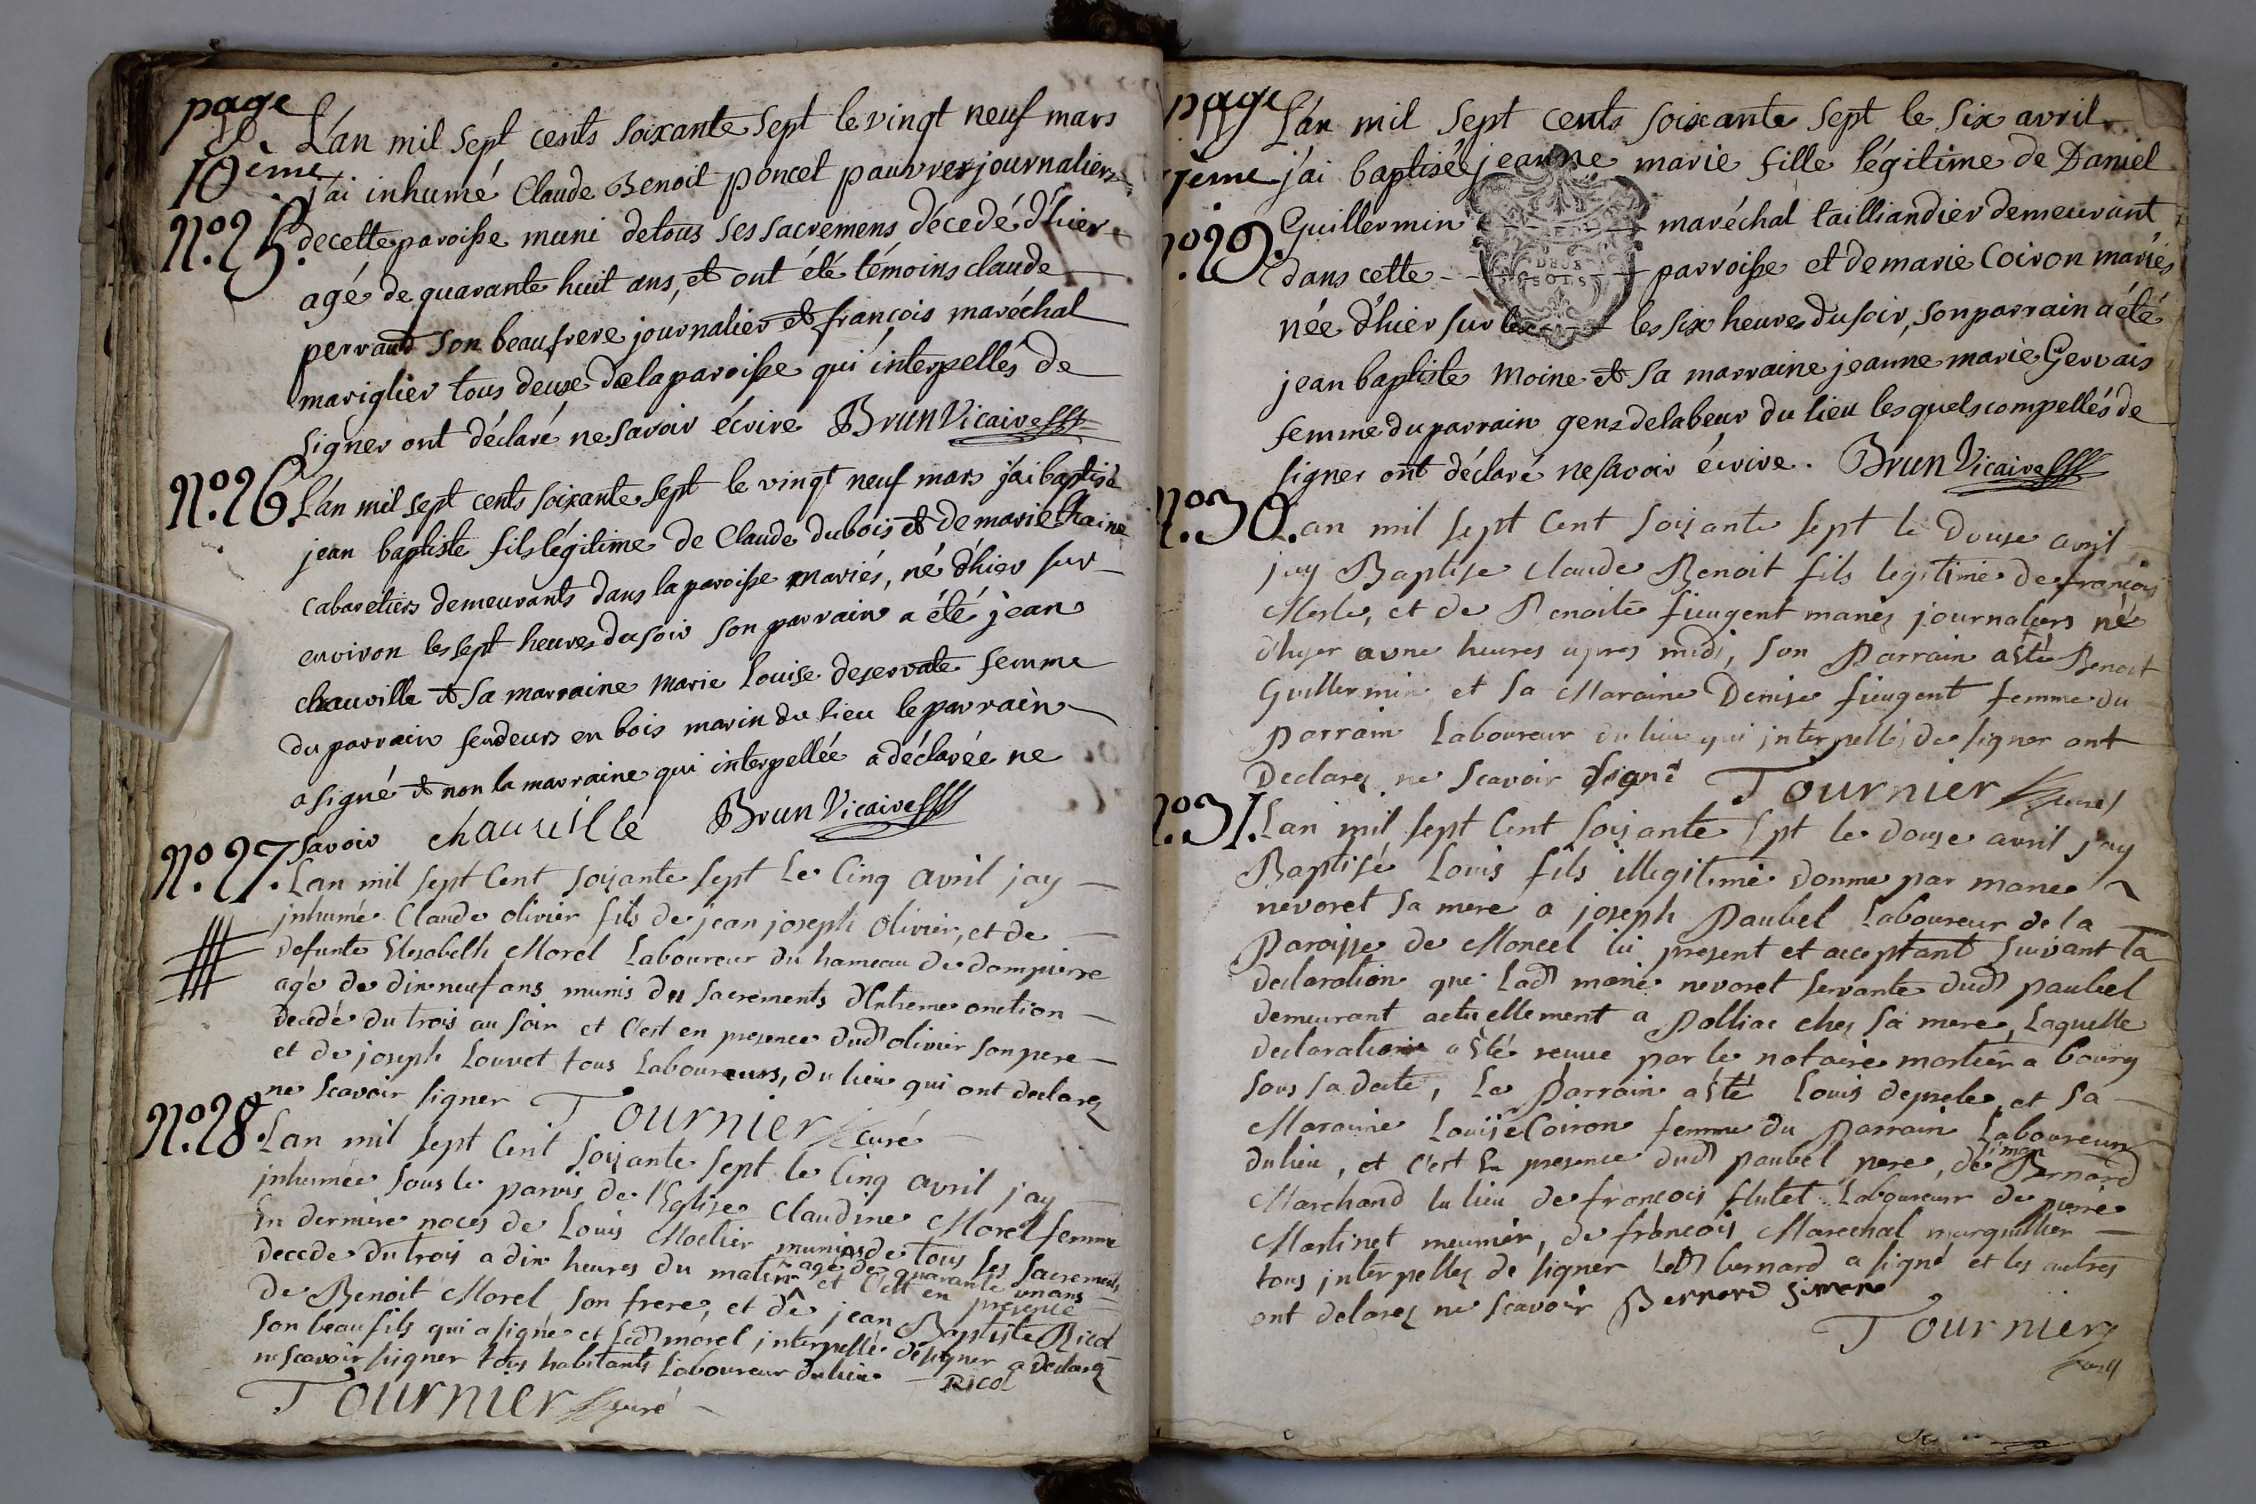 page
10ème
L'an mil sept cents soixante sept le vingt neuf mars
j'ai inhumé Claude Benoit poncet pauvre journalier
N°. 25. de cette paroisse muni de tous ses sacremens décedé d'hier
agé de quarante huit ans, et ont été témoins claude
perraud son beaufrere journalier et françois maréchal
mariglier tous deux de la paroisse qui interpellés de
signer ont déclaré ne savoir écrire Brun Vicaire
N°. 26. L'an mil sept cents soixante sept le vingt neuf mars j'ai baptisé
jean baptiste fils légitime de Claude dubois et de marie Chaine
cabaretiers demeurants dans la paroisse mariés, né d'hier sur
environ les sept heures du soir son parrain a été jean
chauville et sa marraine marie Louise deservate femme
du parrain fendeurs en bois marin du lieu le parrain
a signé et non la marraine qui interpellée a déclarée ne
savoir chauville Brun Vicaire
N°. 27. Lan mil sept Cent soixante sept Le Cinq avril jay
jnhumé Claude olivier fils de jean joseph Olivier, et de
defunte Elisabelh Morel Laboureur du hameau de dompierre
agé de dix neuf ans munis des sacrements d'Extreme onction
decedé du trois au soir et c'est en presence dud olivier son pere
et de joseph Louvet tous Laboureurs, du lieu qui ont declarez
ne scavoir signer Tournier curé
N°. 28. Lan mil sept Cent soixante sept le Cinq avril jay
jnhumée sous le parvis de l'Eglise Claudine Morel femme
En derniere noces de Louis Moelier munies de tous ses sacrements
decede du trois a dix heures du matin et c'est en presence
agé de quarante un ans
de Benoit Morel son frere, et de jean Baptiste Ricol
son beau fils qui a signé et led morel jnterpellé de signer a declarez
ne scavoir signer tous habitants Laboureur du lieu Ricol
Tournier curé
page
11ème
L'an mil sept cents soixante sept le six avril
j'ai baptisée jeanne marie fille légitime de Daniel
N°. 29. Guillermin maréchal tailliandier demeurant
dans cette parroisse et de marie Coiron mariés
née d'hier sur les six heures du soir, son parrain a été
DEUX
SOLS
jean baptiste moine et sa marraine jeanne marie Gervais
femme du parrain gens de labeur du lieu lesquels compellés de
signer ont déclaré ne savoir écrire. Brun Vicaire
N°. 30. Lan mil sept Cent soixante sept le douse avril
jay Baptise Claude Benoit fils legitime de francois
Merle, et de Benoite fieugent mariés journaliers né
d'hyer a une heures apres midi, son Parrain a esté Benoit
Guillermin et sa Maraine Denise fieugent femme du
Parrain Laboureur du lieu qui jnterpellés de signer ont
Declarez ne scavoir signé Tournier curé
N°. 31. Lan mil sept Cent soixante sept le douse avril jay
Baptisé Louis fils illegitime donné par marie
nevoret sa mere a joseph Paubel Laboureur de la
Paroisse de Moncel lui present et acceptant suivant la
declaration que Lad marie nevoret servante dud paubel
demeurant actuellement a Polliac ches sa mere, Laquelle
declaration a esté receue par le notaire mortier a bourg
sous sa date, Le Parrain a esté Louis deprele, et sa
Maraine Louise Coiron femme du Parrain Laboureur
du lieu, et c'est En presence dud paubel pere, de Simon Bernard
Marchand du lieu de francois flutet Laboureur de pierre
Martinet meunier, de francois Marechal marguillier
tous jnterpellez de signer Led bernard a signé et les autres
ont delarez ne scavoir Bernard Simon
Tournier
curé